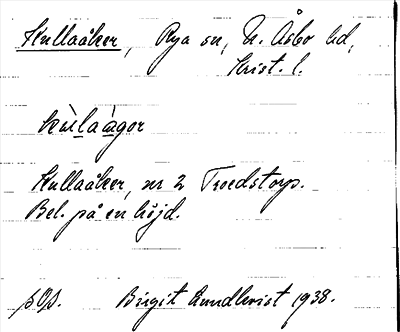 Kullaåker, Rya sn, N. Åsbo hd,
Krist. l.
kùlaàgər
Kullaåker, nr 2 Troedstorp.
Bel. på en höjd.
Birgit Rundkvist 1938.